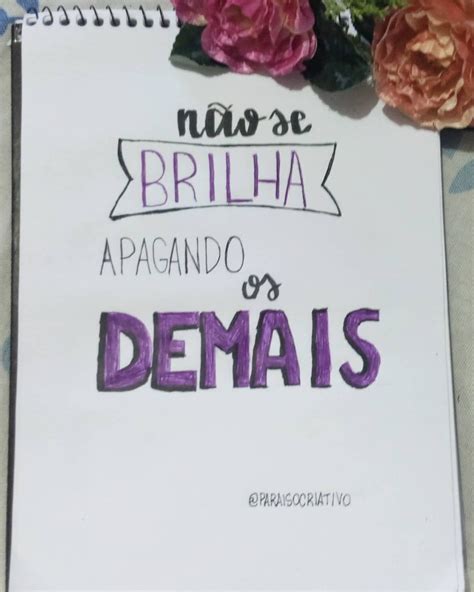 não se
BRILHA
APAGANDO
os
DEMAIS
@PARAISOCRIATIVO